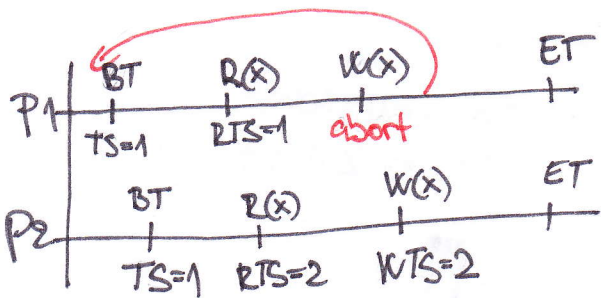 BT R(x) W(x) ET
P1
TS=1 RTS=1 abort
BT R(x) W(x) ET
P2
TS=1 RTS=2 WTS=2